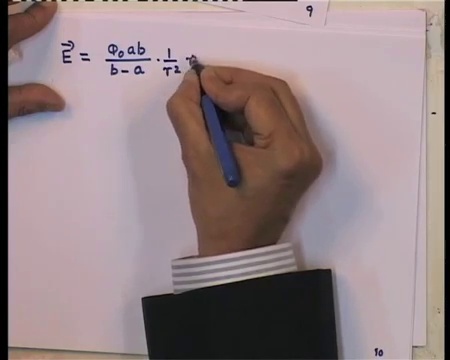 9
E⃗ = Φ₀ab / (b − a) · 1/r²
10